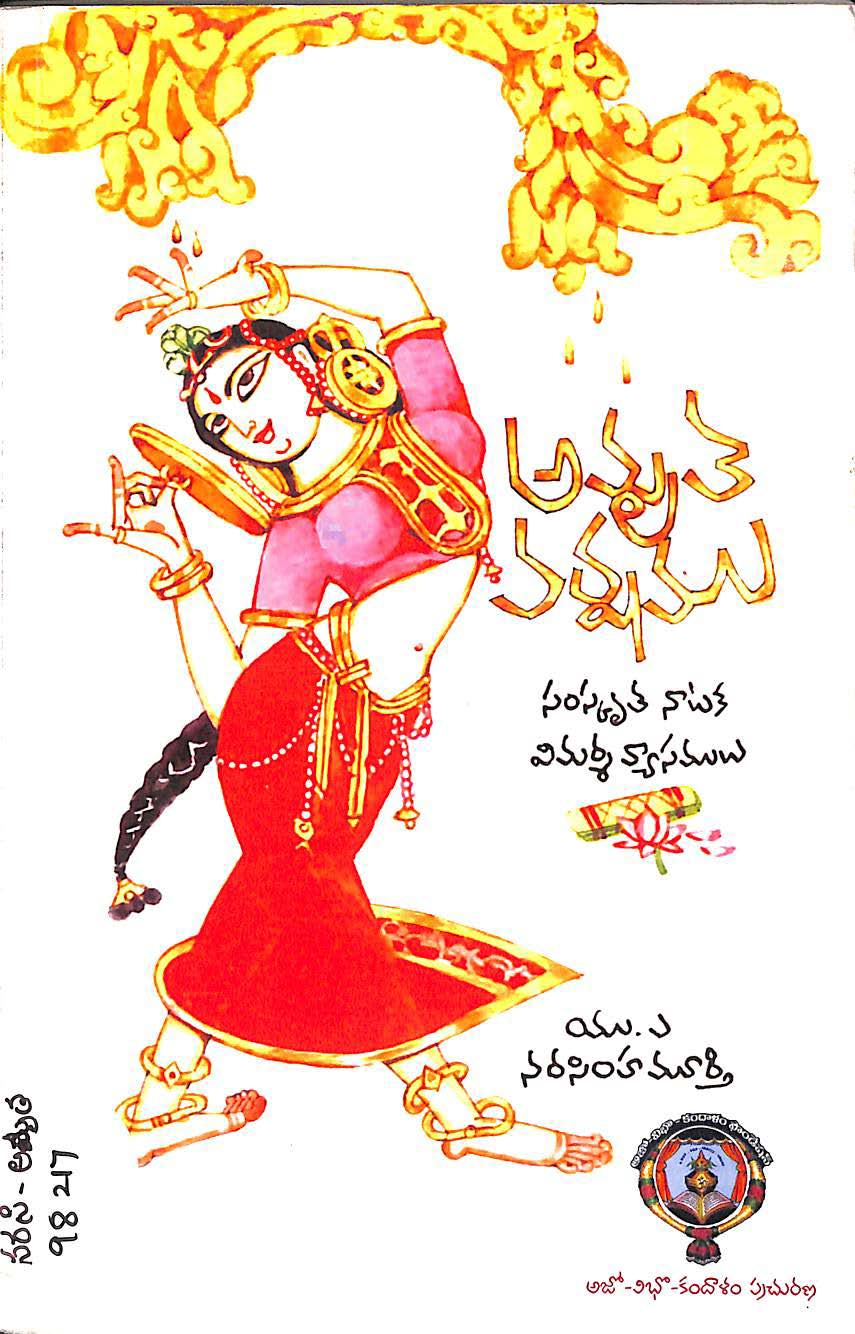 అమృత
వర్షము
సంస్కృత నాటక
విమర్శ వ్యాసములు
యు. ఎ
నరసింహమూర్తి
అజో-విభొ-కందాళం ఫౌండేషన్
అజో-విభొ-కందాళం ప్రచురణ
నరసి - అమృత
98217